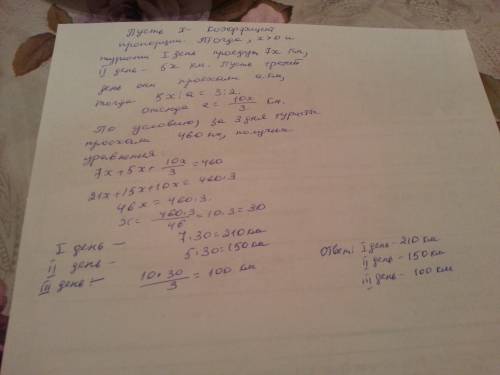 Пусть X - коэффициент
пропорции. Тогда, x>0 и
туристы I день проедут 7x км,
II день - 5x км. Пусть третий
день они проехали a км,
тогда 5x : a = 3:2.
Отсюда a = 10x/3 км.
По условию, за 3 дня туристы
проехали 460 км, получим
уравнения
7x+5x+10x/3=460
21x+15x+10x=460·3
46x=460·3.
x=460·3/46=10·3=30
I день - 7·30=210км
II день - 5·30=150км
III день - 10·30/3=100 км
Ответ: I день - 210 км
II день - 150 км
III день - 100 км